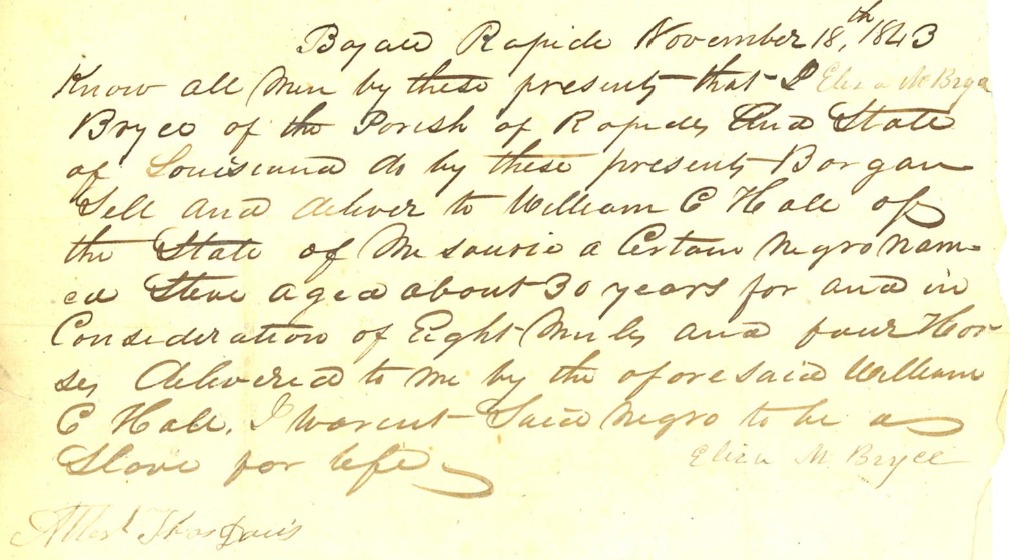 Bayou Rapide November 18th, 1843
Know all Men by these presents that I Eliza M Bryce
Bryce of the Parish of Rapides And State
of Louisiana do by these presents Borgan
Sell and deliver to William C Hall of
the State of Mesourie a Certain Negro Nam-
ed Steve aged about 30 years for and in
Consideration of Eight Mules and four Hor-
ses delivered to me by the aforesaid William
C Hall. I warent Said Negro to be a
Slave for life
Eliza M Bryce
Attest Thos Davis